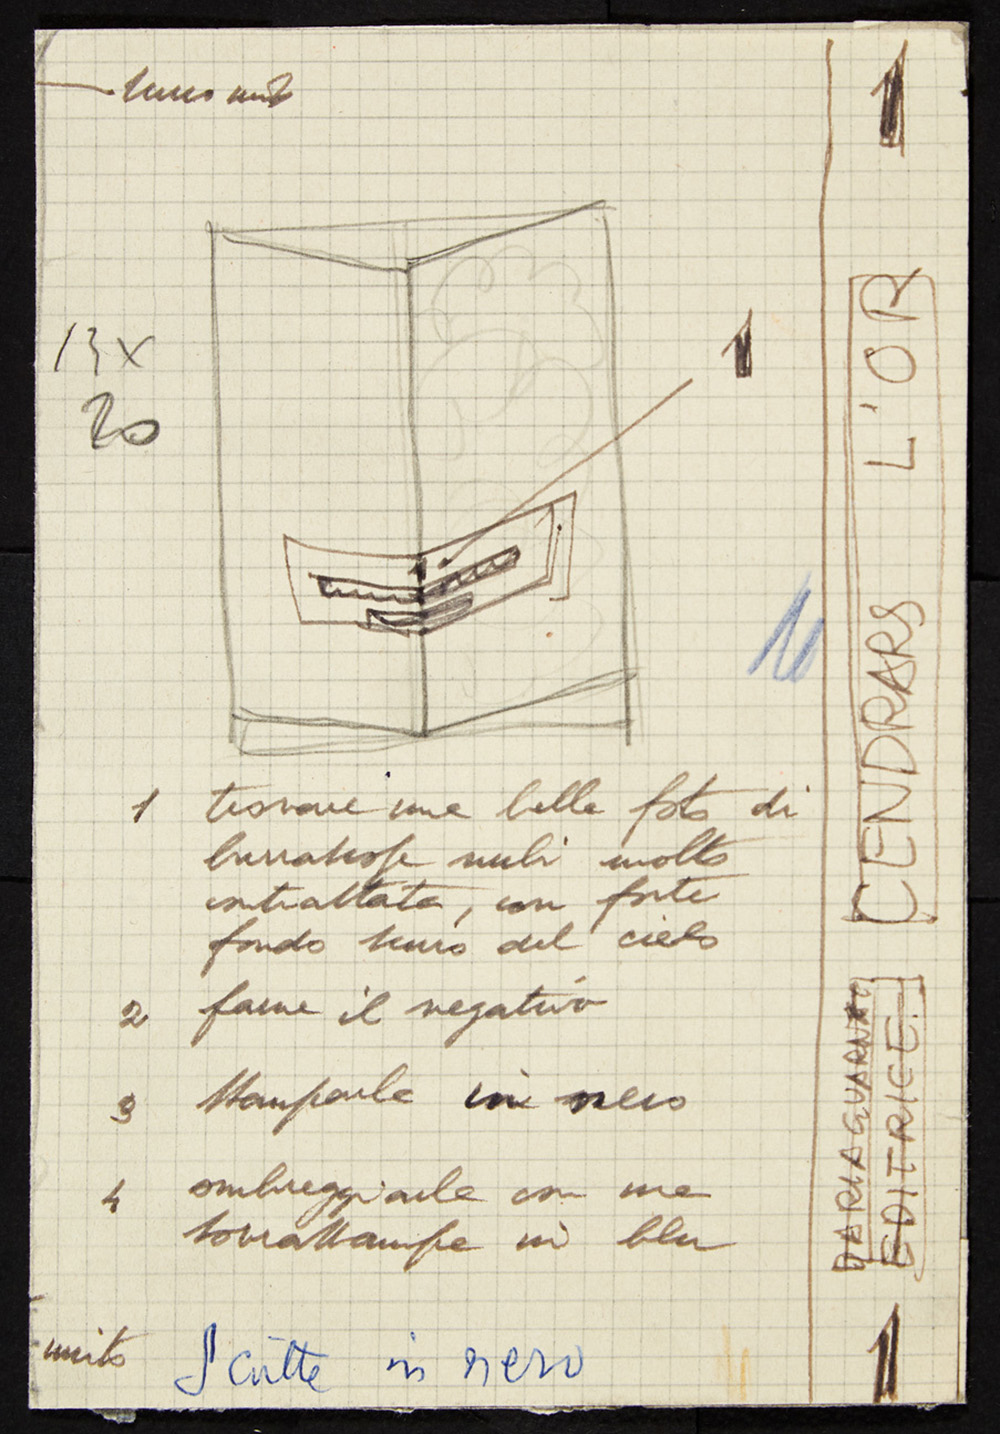 1
13x
20
1
L'OR
CENDRARS
DARIA GUARNATI
EDITRICE
1 trovare una bella foto di
burrascose nubi molto
contrastata, con forte
fondo scuro del cielo
2 farne il negativo
3 stamparla in nero
4 ombreggiarla con una
sovrastampa in blu
unito Scritte in nero
1